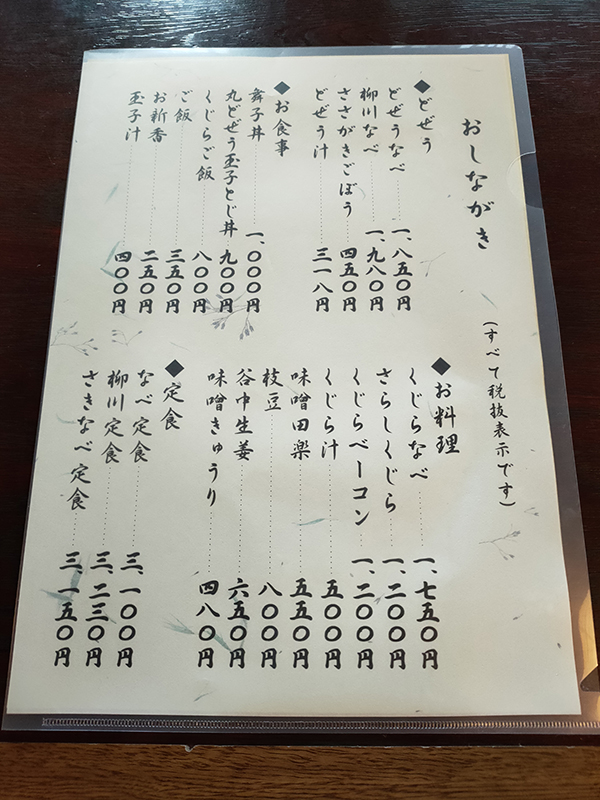 おしながき
(すべて税抜表示です)
◆どぜう
どぜうなべ 一、八五〇円
柳川なべ 一、九八〇円
ささがきごぼう 四五〇円
どぜう汁 三一八円
◆お食事
舞子丼 一、〇〇〇円
丸どぜう玉子とじ丼 九〇〇円
くじらご飯 八〇〇円
ご飯 三五〇円
お新香 二五〇円
玉子汁 四〇〇円
◆お料理
くじらなべ 一、七五〇円
さらしくじら 一、二〇〇円
くじらベーコン 一、二〇〇円
くじら汁 五〇〇円
味噌田楽 五五〇円
枝豆 八〇〇円
谷中生姜 六五〇円
味噌きゅうり 四八〇円
◆定食
なべ定食 三、一〇〇円
柳川定食 三、二三〇円
さきなべ定食 三、一五〇円